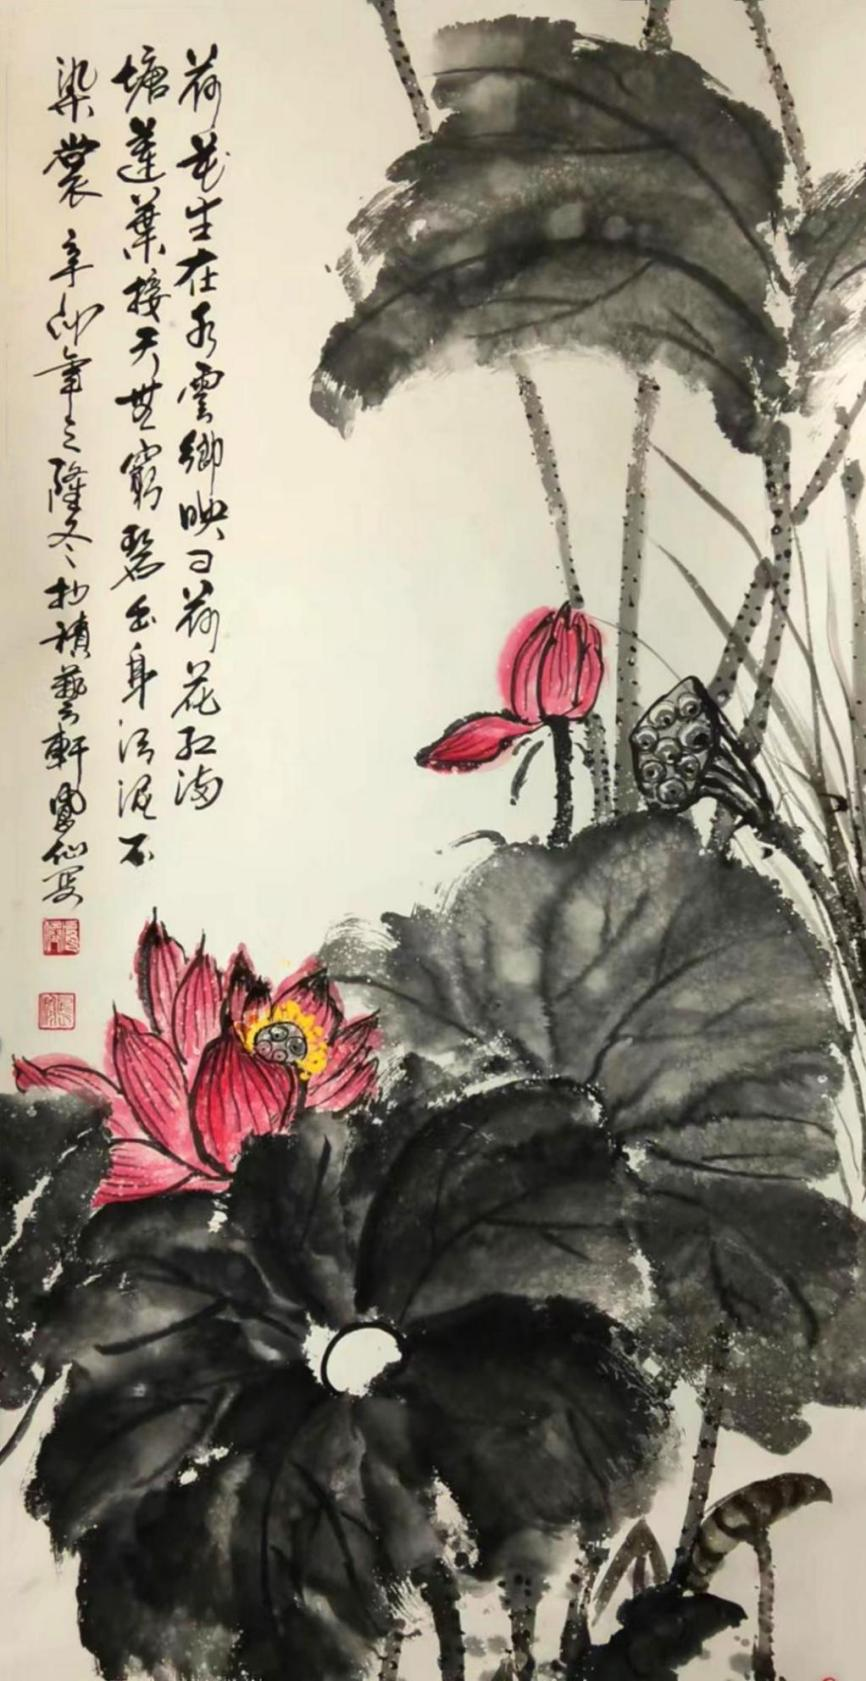 荷花生在水雲鄉映日荷花紅滿
塘蓮葉接天無窮碧出身污泥不
染裳 辛卯年之隆冬於積藝軒鳳仙寫